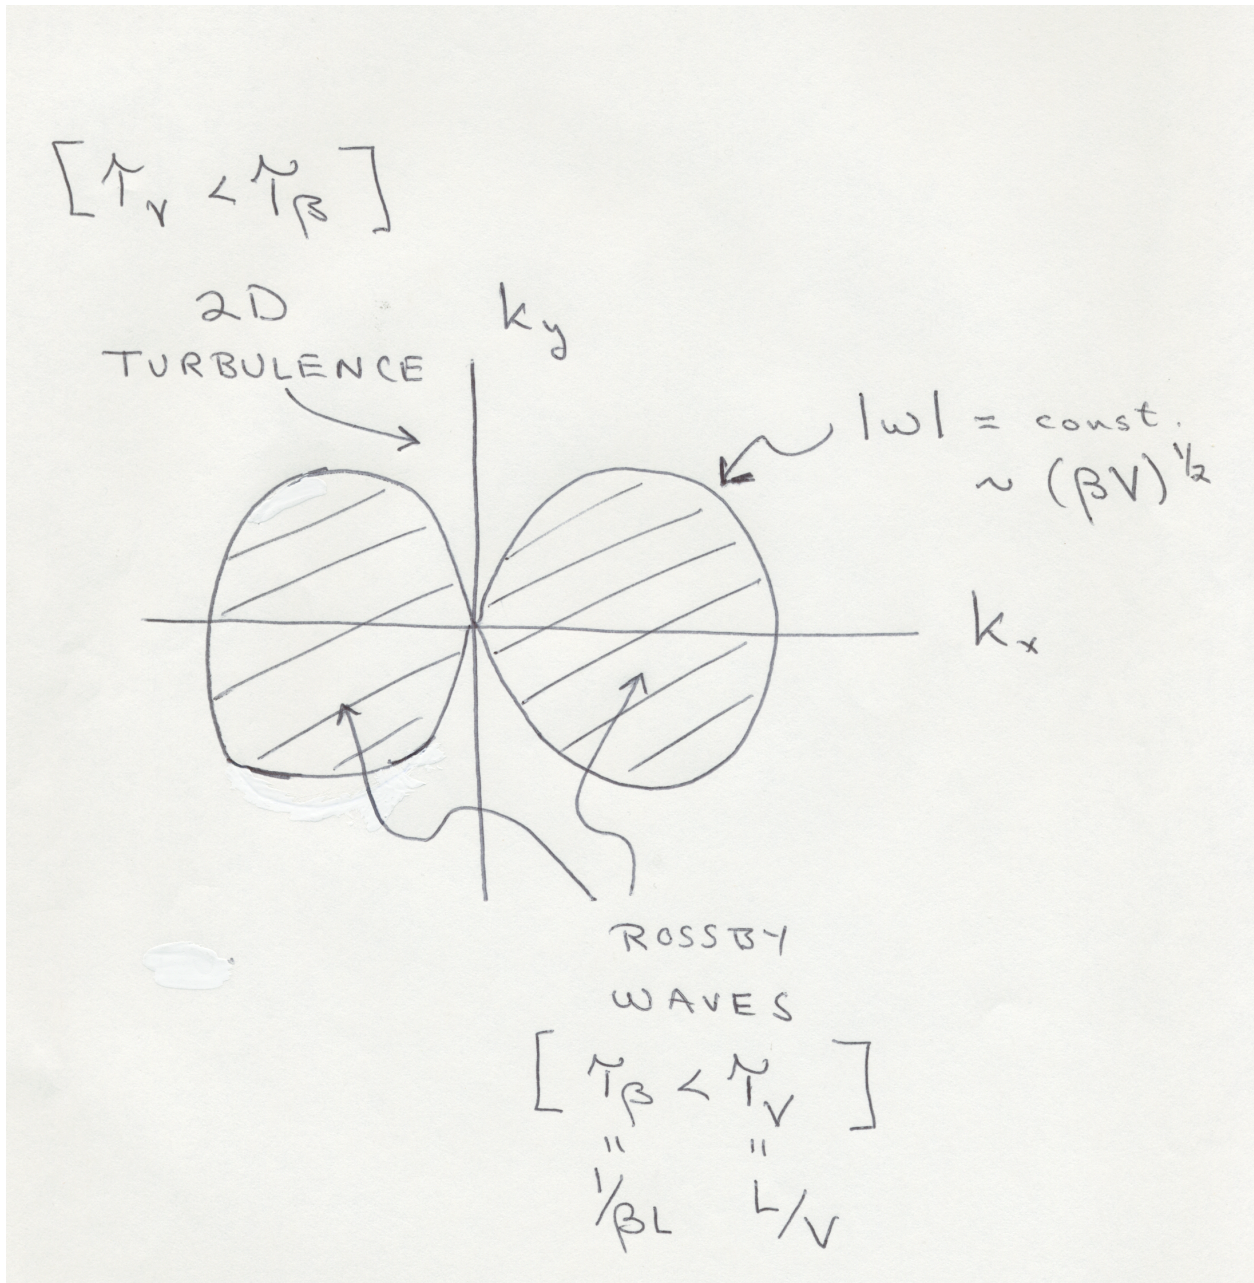 [ τᵥ < τᵦ ]
2D
TURBULENCE
ky
|ω| = const.
~ (βV)^½
kx
ROSSBY
WAVES
[ τᵦ < τᵥ ]
" "
1/βL L/V